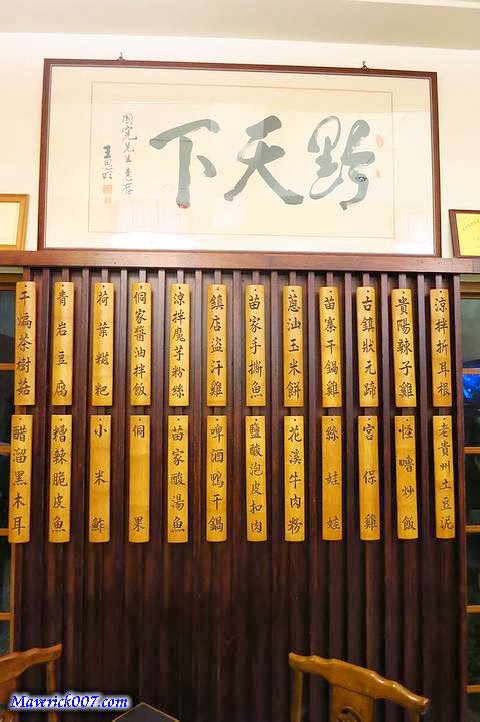 黔天下
先生
涼拌折耳根
貴陽辣子雞
古鎮狀元蹄
苗寨干鍋雞
蔥油玉米餅
苗家手撕魚
鎮店盜汗雞
涼拌魔芋粉絲
侗家醬油拌飯
荷葉糍粑
青岩豆腐
干煸茶樹菇
老貴州土豆泥
怪嚕炒飯
宮保雞
絲娃娃
花溪牛肉粉
鹽酸泡皮扣肉
啤酒鴨干鍋
苗家酸湯魚
侗果
小米鮓
糟辣脆皮魚
醋溜黑木耳
Maverick007.com